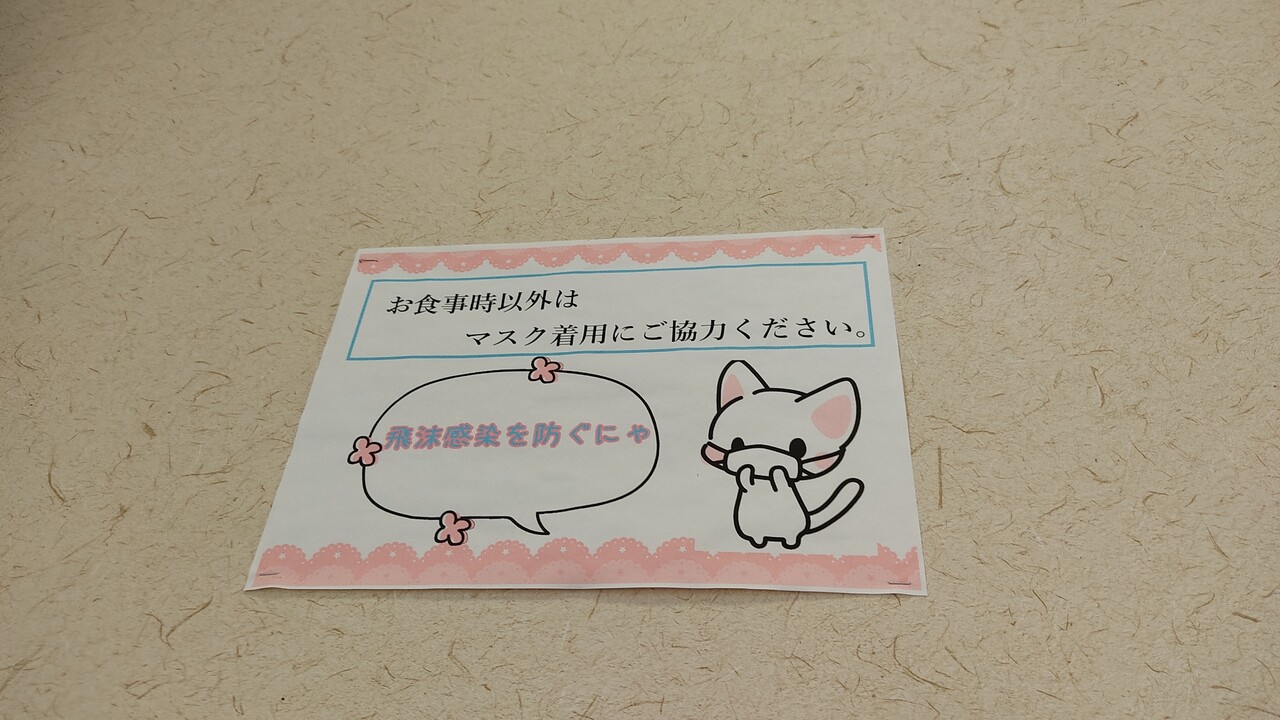 お食事時以外は
マスク着用にご協力ください。
飛沫感染を防ぐにゃ